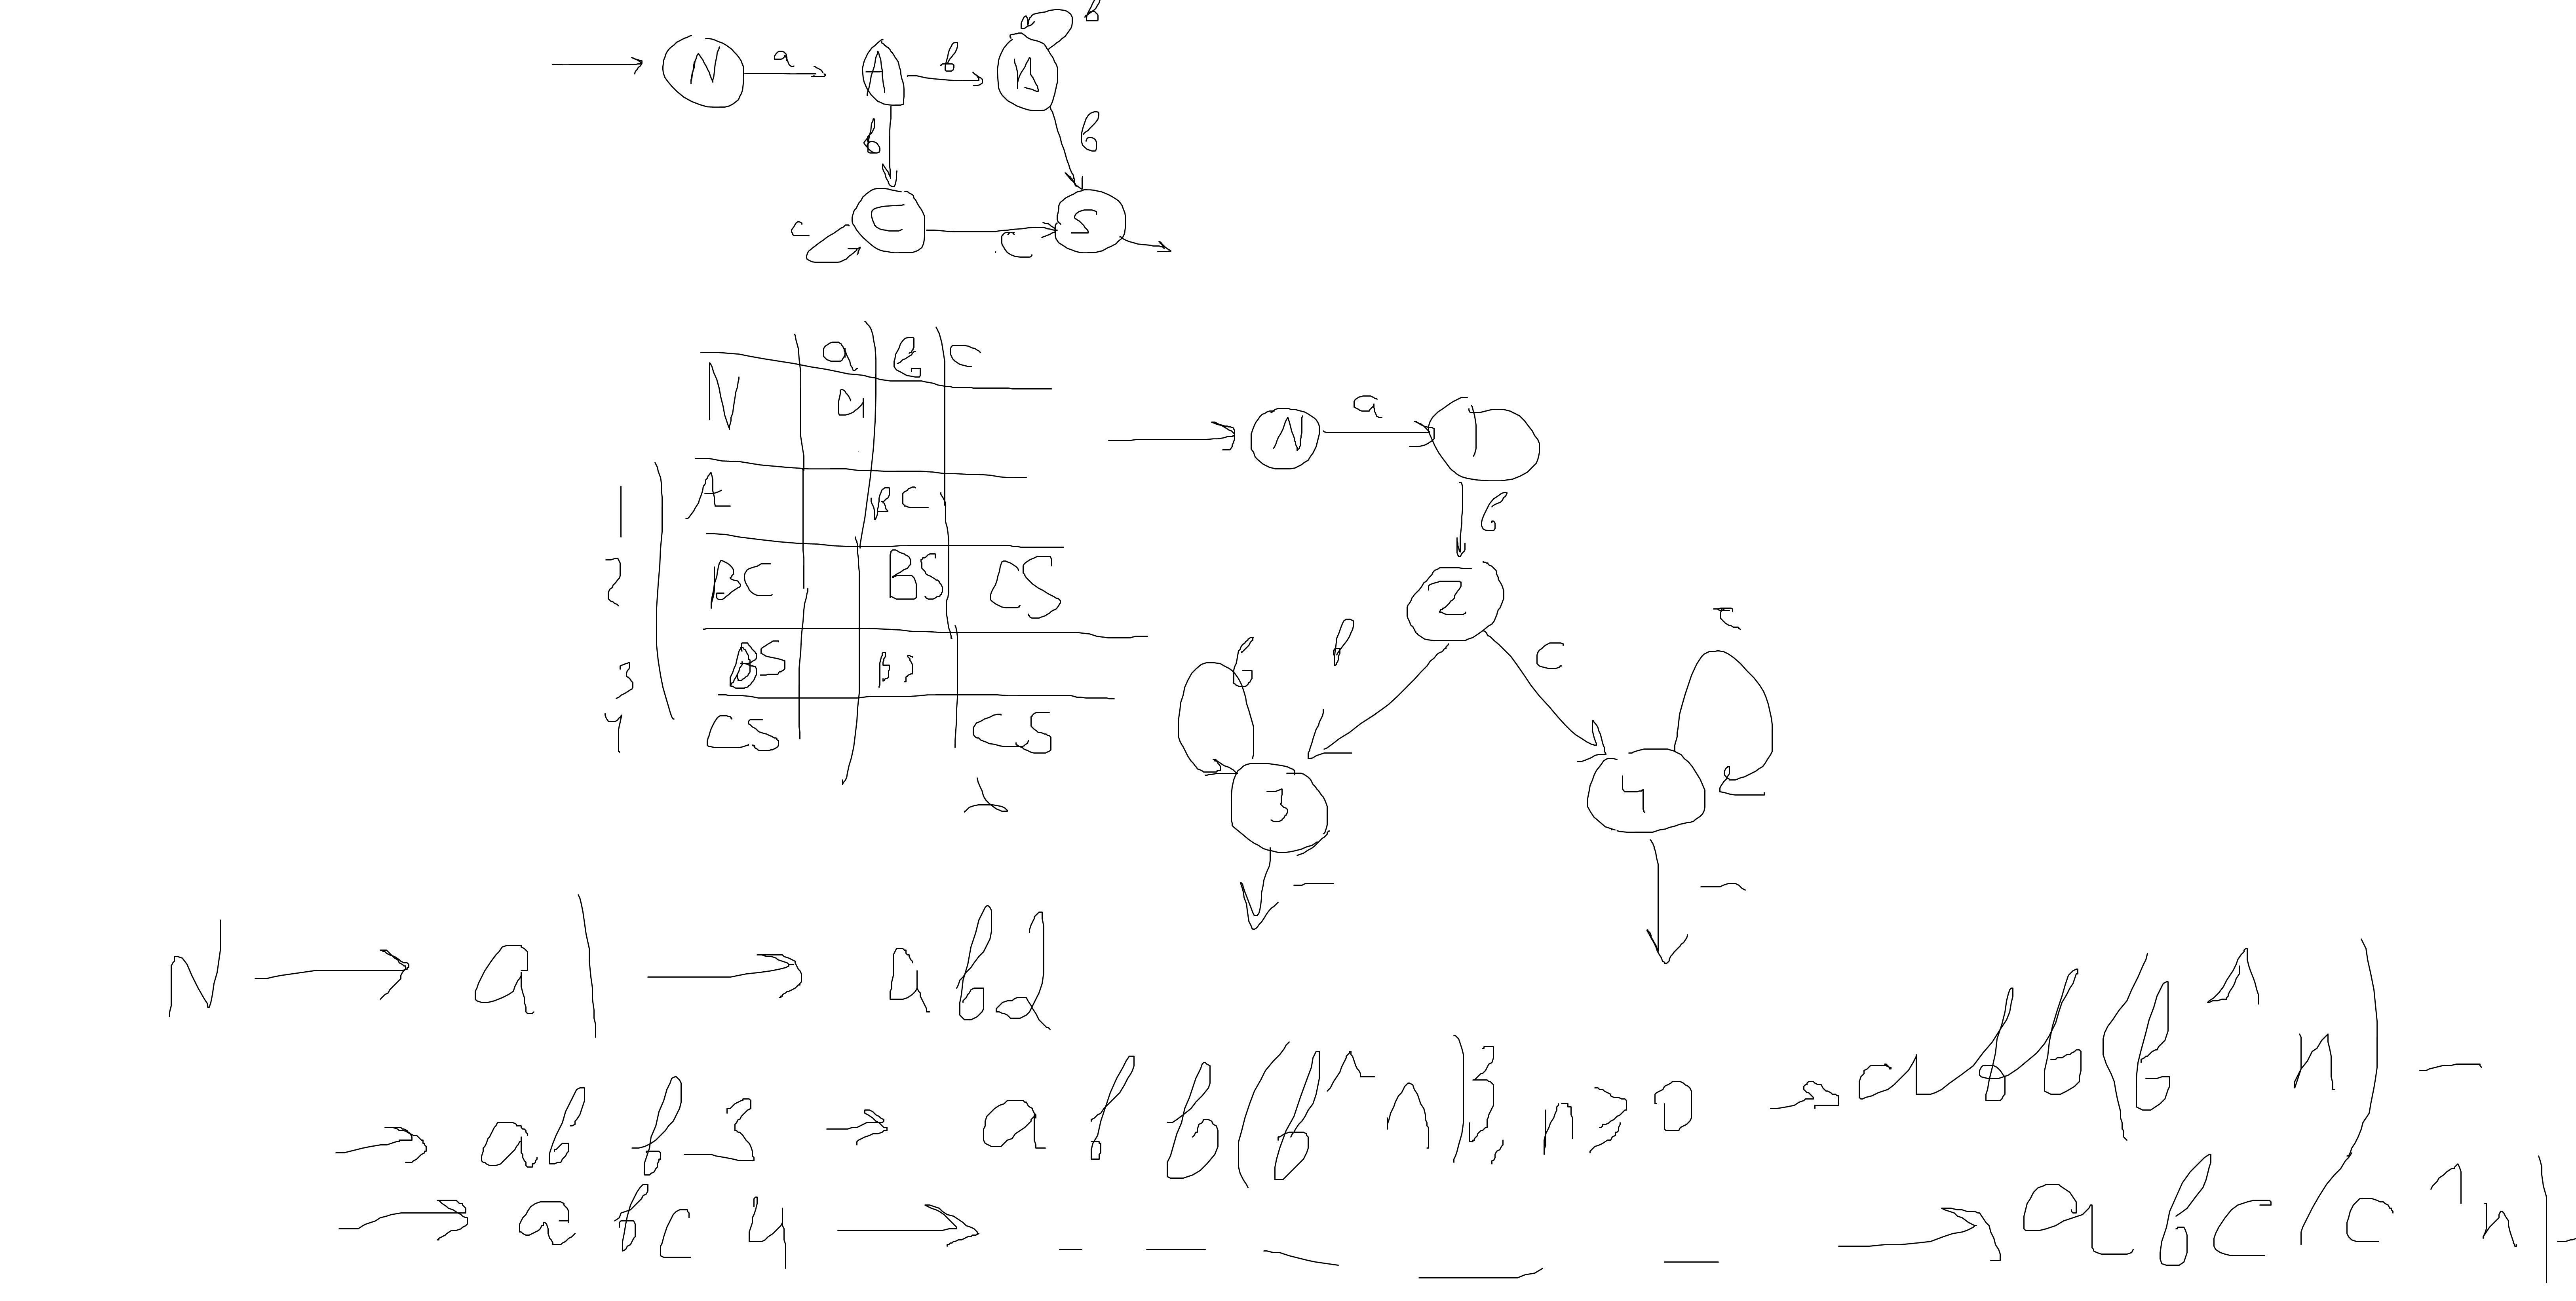 N a A b B b
b b
c C c S
a b c
N a
A BC
1
BC BS CS
2
BS BS
3
CS CS
4
N a 1
b
2
b b c c
3 4
- -
N → a1 → ab2
→ abb3 → abb(b^n)3, n≥0 → abb(b^n) -
→ abc4 → - - - - - → abc(c^n) -